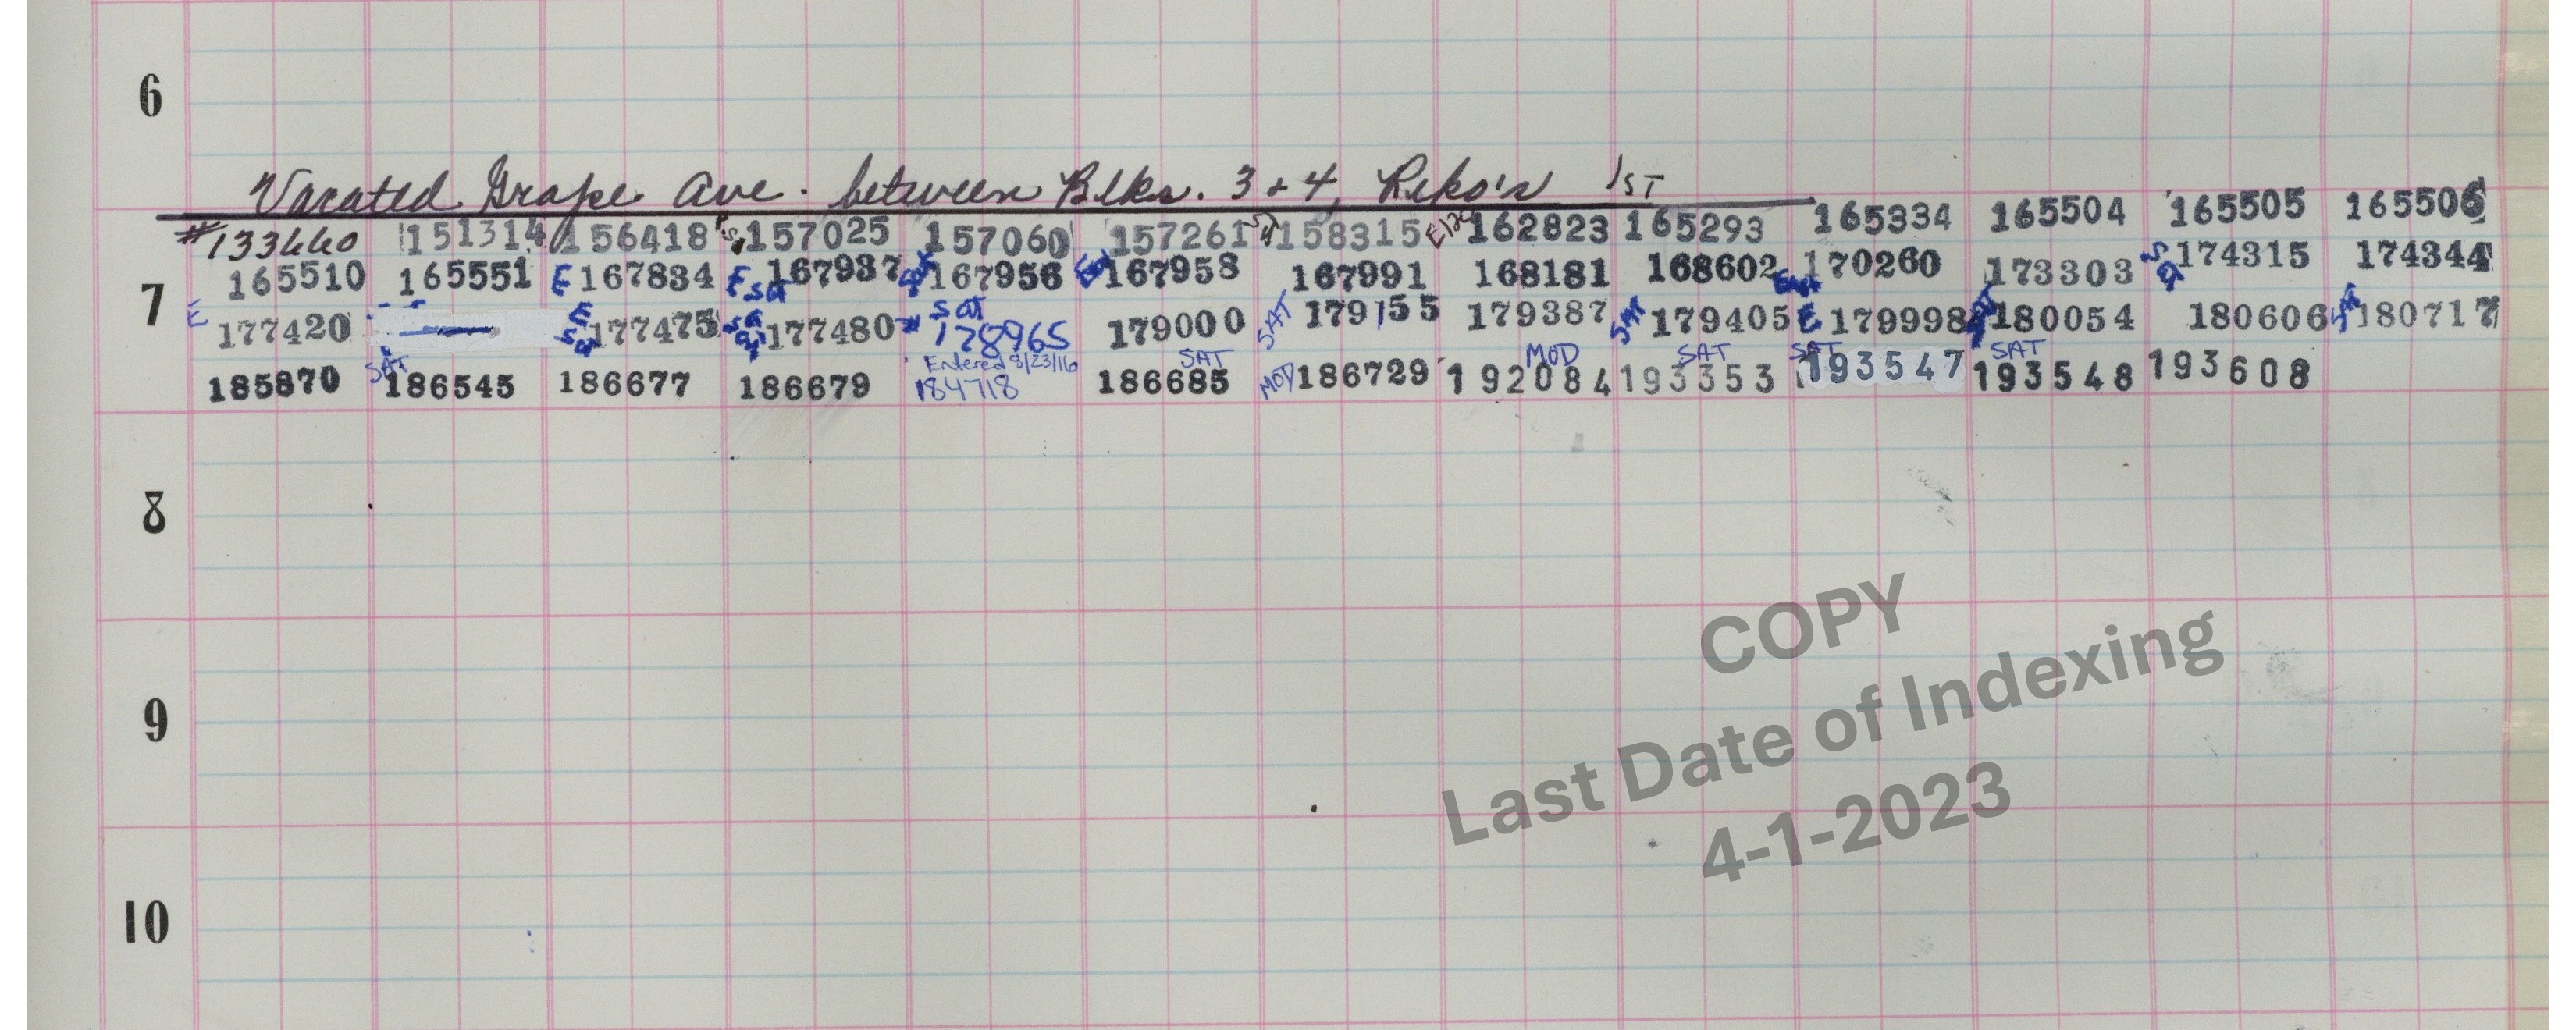 6
Vacated Grape Ave. between Blks. 3 + 4, Reko's 1ST
#133660 151314 156418 157025 157060 157261 158315 162823 165293 165334 165504 165505 165506
7
165510 165551 E 167834 E sat 167937 167956 167958 167991 168181 168602 170260 173303 174315 174344
E 177420 E sat 177475 sat 177480 sat 178965 179000 SAT 179155 179387 SAT 179405 E 179998 180054 180606 180717
Entered 8/23/16 SAT MOD SAT SAT SAT
185870 SAT 186545 186677 186679 184718 186685 MOD 186729 192084 193353 193547 193548 193608
8
9
10
COPY
Last Date of Indexing
4-1-2023